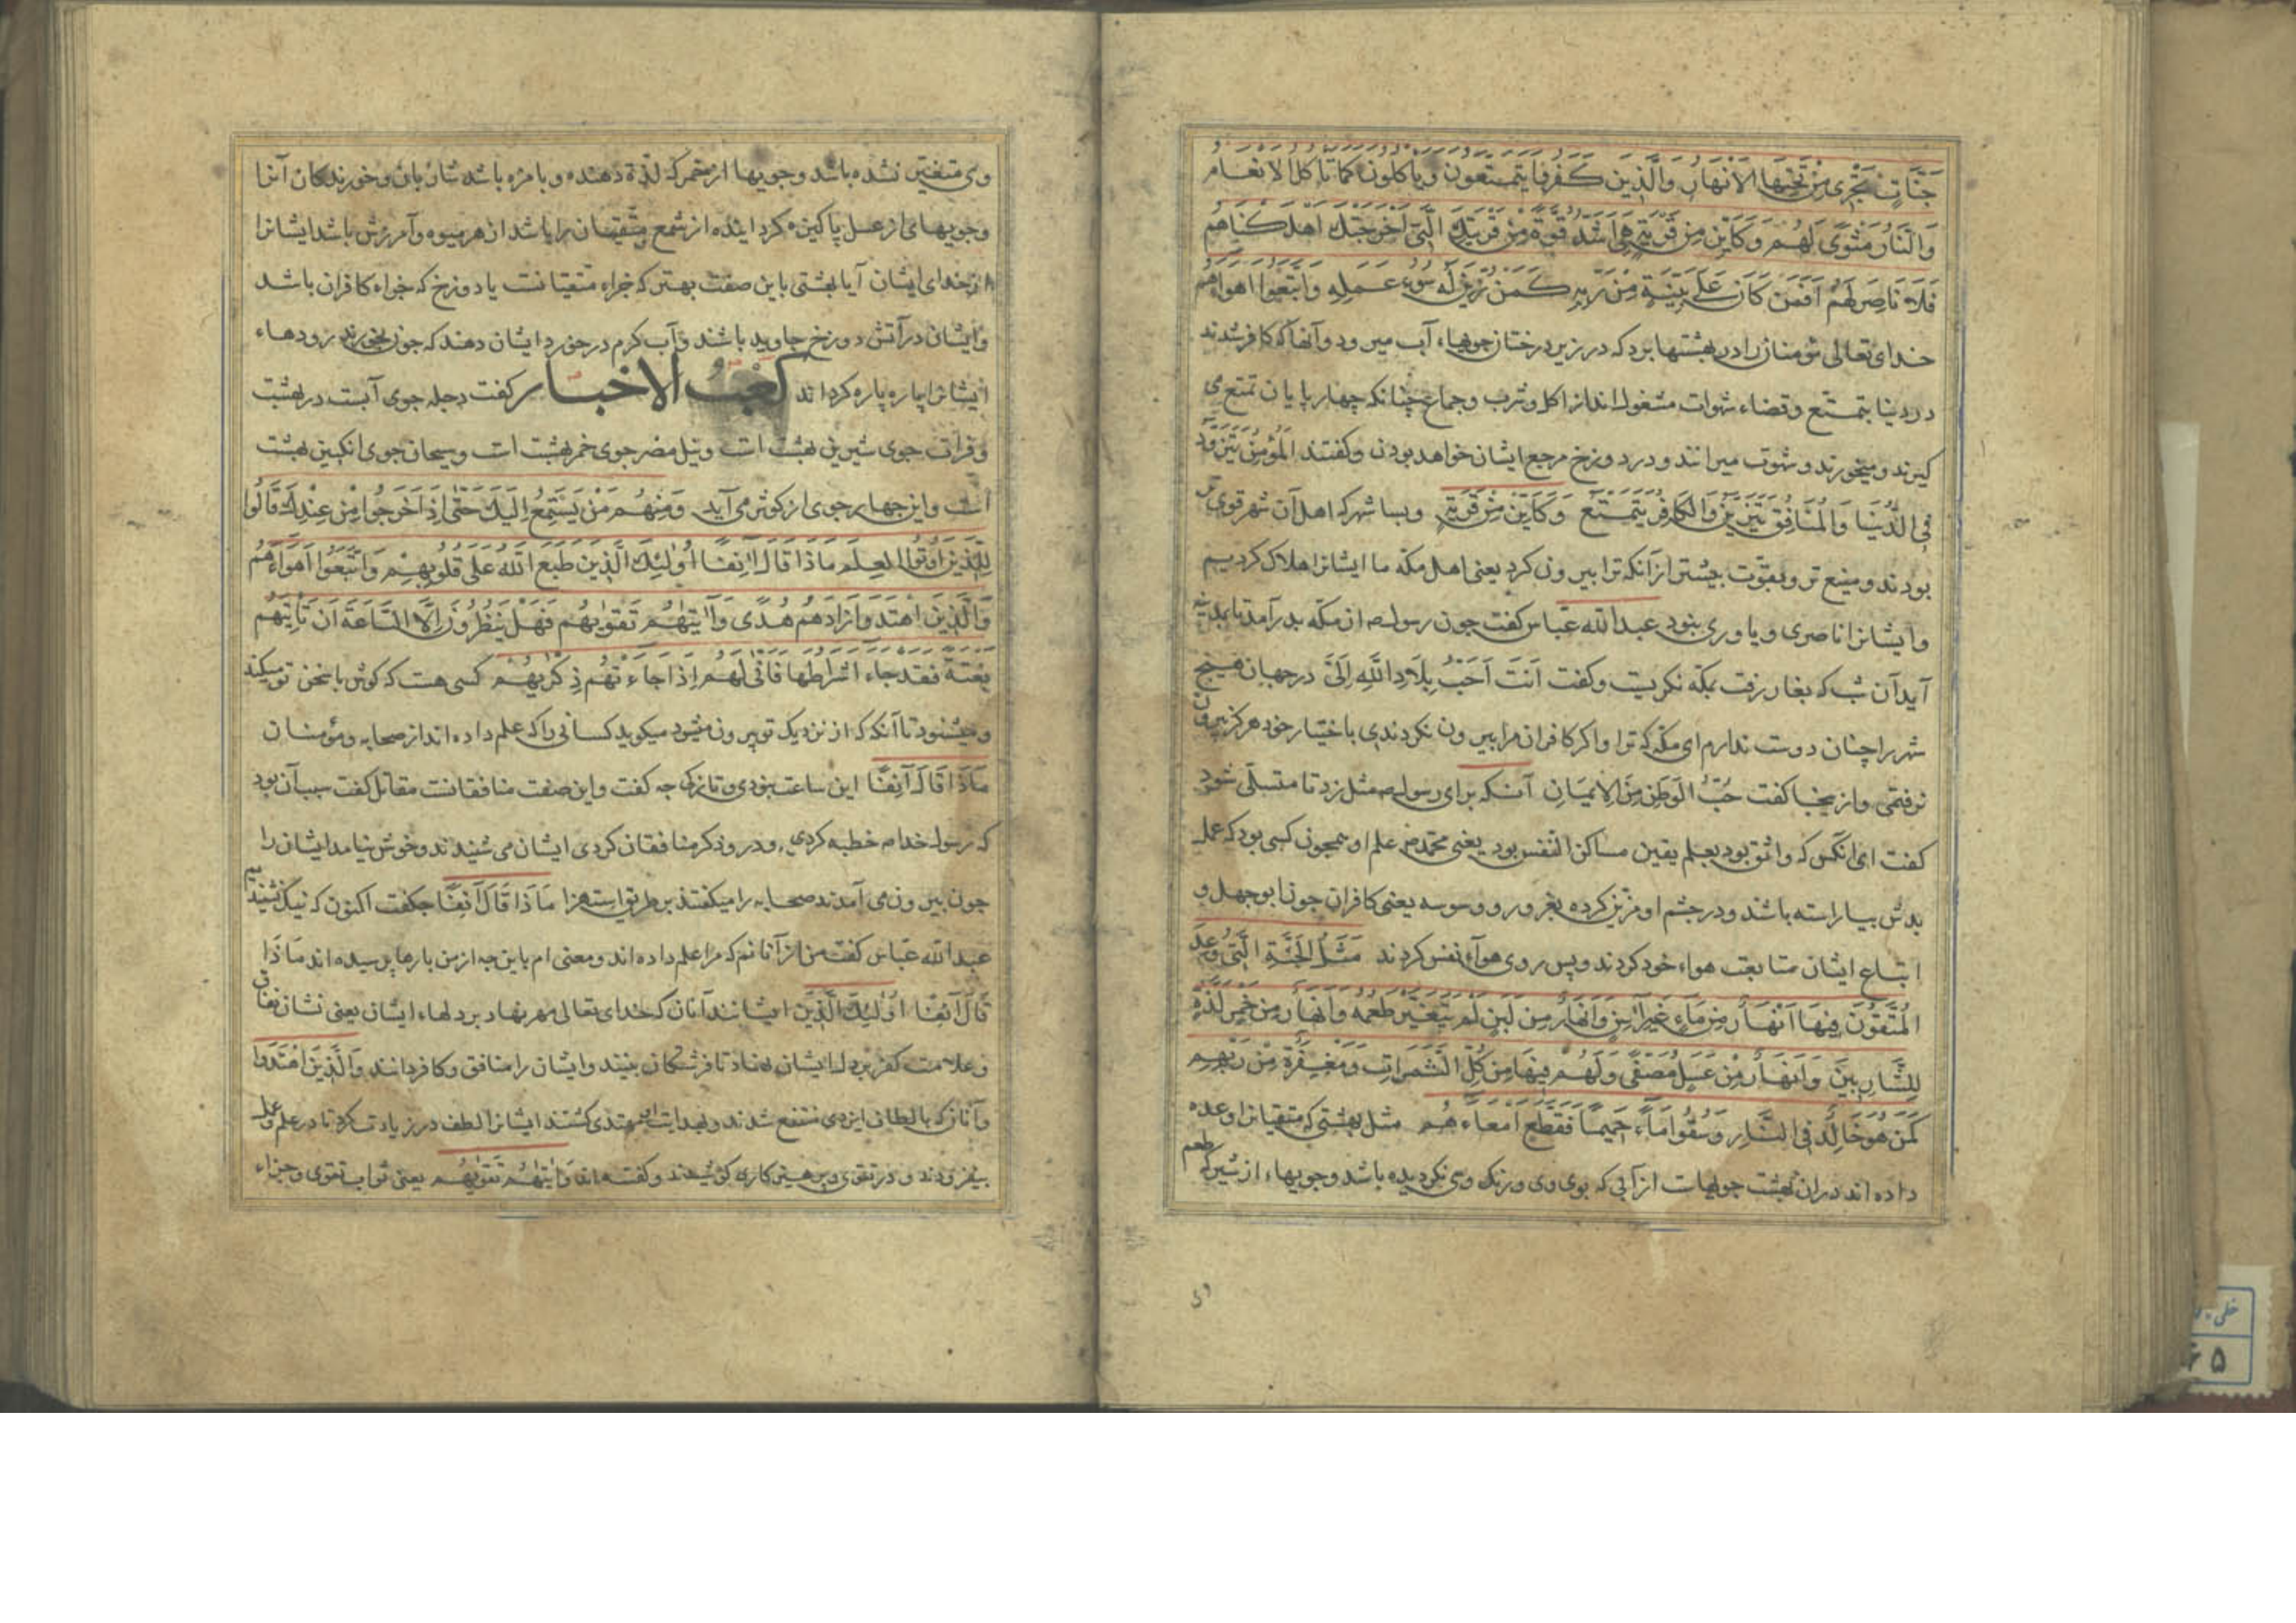 جَنَّاتٍ تَجْرِي مِنْ تَحْتِهَا الْأَنْهَارُ وَالَّذِينَ كَفَرُوا يَتَمَتَّعُونَ وَيَأْكُلُونَ كَمَا تَأْكُلُ الْأَنْعَامُ
وَالنَّارُ مَثْوًى لَهُمْ وَكَأَيِّنْ مِنْ قَرْيَةٍ هِيَ أَشَدُّ قُوَّةً مِنْ قَرْيَتِكَ الَّتِي أَخْرَجَتْكَ أَهْلَكْنَاهُمْ
فَلَا نَاصِرَ لَهُمْ أَفَمَنْ كَانَ عَلَى بَيِّنَةٍ مِنْ رَبِّهِ كَمَنْ زُيِّنَ لَهُ سُوءُ عَمَلِهِ وَاتَّبَعُوا أَهْوَاءَهُمْ
خدای تعالی مؤمنان را در بهشتها برد که در زیر درختان جویهاء آب میرود وآنها که کافر شدند
در دنیا بتمتع وقضاء شهوات مشغول اند از اکل وشرب وجماع چنانکه چهارپایان تمتع می
کیرند ومیخورند وشهوت میرانند ودر دوزخ مرجع ایشان خواهد بودن وکفتند المُؤْمِنُ يَتَزَوَّدُ
فِي الدُّنْيَا وَالْمُنَافِقُ يَتَزَيَّنُ وَالْكَافِرُ يَتَمَتَّعُ وَكَأَيِّنْ مِنْ قَرْيَةٍ وبسا شهر که اهل آن شهر قوی تر
بودند ومنیع تر وبقوّت بیشتر از آنکه ترا بیرون کرد یعنی اهل مکّه ما ایشانرا هلاک کردیم
وایشانرا ناصری ویاوری نبود عبد الله عبّاس کفت چون رسول ص از مکّه بدر آمد تا بمدینه
آید آن شب که بغار رفت بمکّه نکریست وکفت اَنْتَ اَحَبُّ بِلَادِ اللَّهِ اِلَيَّ در جهان هیچ
شهر را چنان دوست ندارم ای مکّه که ترا واکر کافران مرا بیرون نکردندی باختیار خود هرکز بیرون
نرفتمی واز ینجا کفت حُبُّ الْوَطَنِ مِنَ الْاِيمَانِ آنکه برای رسول ص مثل زد تا متسلّی شود
کفت ای انکس که واثق بود بعلم یقین ساکن النفس بود یعنی محمد ص علم او همچون کسی بود که عمل
بدش بیاراسته باشد ودر چشم او مزیّن کرده بغرور ووسوسه یعنی کافران چون ابوجهل و
اتباع ایشان متابعت هواء خود کردند وپس روی هوآء نفس کردند مَثَلُ الْجَنَّةِ الَّتِي وُعِدَ
الْمُتَّقُونَ فِيهَا أَنْهَارٌ مِنْ مَاءٍ غَيْرِ آسِنٍ وَأَنْهَارٌ مِنْ لَبَنٍ لَمْ يَتَغَيَّرْ طَعْمُهُ وَأَنْهَارٌ مِنْ خَمْرٍ لَذَّةٍ
لِلشَّارِبِينَ وَأَنْهَارٌ مِنْ عَسَلٍ مُصَفًّى وَلَهُمْ فِيهَا مِنْ كُلِّ الثَّمَرَاتِ وَمَغْفِرَةٌ مِنْ رَبِّهِمْ
كَمَنْ هُوَ خَالِدٌ فِي النَّارِ وَسُقُوا مَاءً حَمِيمًا فَقَطَّعَ أَمْعَاءَهُمْ مثل بهشتی که متقیانرا وعده
داده اند در ان بهشت جویهاست از آبی که بوی وی ورنک وی نکردیده باشد وجویهاء از شیر که طعم
وی
وی متغیّر نشده باشد وجویها از خمر که لذّة دهنده وبا مزه باشد شاربان وخورندکان آنرا
وجویهای از عسل پاکیزه کردانیده از شمع متّقیان را باشد از هر میوه وآمرزش باشد ایشانرا
از خدای ایشان آیا بهشتی باین صفت بهتر که جزاء متقیانست یا دوزخ که جزاء کافران باشد
وایشان در آتش دوزخ جاوید باشند وآب کرم در خورد ایشان دهند که چون بخورند رودهاء
ایشانرا پاره پاره کرداند کعب الاخبار کفت دجله جوی آبست در بهشت
وفرات جوی شیرین بهشت است ونیل مصر جوی خمر بهشت است وسیحان جوی انکبین بهشت
است واین چهار جوی از کوثر می آید وَمِنْهُمْ مَنْ يَسْتَمِعُ إِلَيْكَ حَتَّى إِذَا خَرَجُوا مِنْ عِنْدِكَ قَالُوا
لِلَّذِينَ أُوتُوا الْعِلْمَ مَاذَا قَالَ آنِفًا أُولَئِكَ الَّذِينَ طَبَعَ اللَّهُ عَلَى قُلُوبِهِمْ وَاتَّبَعُوا أَهْوَاءَهُمْ
وَالَّذِينَ اهْتَدَوْا زَادَهُمْ هُدًى وَآتَيهُمْ تَقْوَيهُمْ فَهَلْ يَنْظُرُونَ إِلَّا السَّاعَةَ أَنْ تَأْتِيَهُمْ
بَغْتَةً فَقَدْ جَاءَ أَشْرَاطُهَا فَأَنَّى لَهُمْ إِذَا جَاءَتْهُمْ ذِكْرَيهُمْ کسی هست که کوش با سخن تو میکند
ومیشنود تا آنکه که از نزدیک تو بیرون میشود میکوید کسانی را که علم داده اند از صحابه ومؤمنان
مَاذَا قَالَ آنِفًا این ساعت چه کفت واین صفت منافقانست مقاتل کفت سبب آن بود
که رسول خدا ص خطبه کردی ودر وذکر منافقان کردی ایشان می شنیدند وخوش نیامد ایشان را
چون بیرون می آمدند صحابه را میکفتند بر طریق استهزا مَاذَا قَالَ آنِفًا چکفت اکنون که نیک نشنیدیم
عبد الله عبّاس کفت من از آنانم که مرا علم داده اند ومعنی ام باین چه از من بارها پرسیده اند مَاذَا
قَالَ آنِفًا أُولَئِكَ الَّذِينَ ایشانند آنان که خدای تعالی مهر نهاد بر دلهاء ایشان یعنی نشان نفاق
وعلامت کفر بر دل ایشان نهاد تا فرشتکان بینند وایشان را منافق وکافر دانند وَالَّذِينَ اهْتَدَوْا
وآنان که بالطاف ایزدی منتفع شدند وبهدایت مهتدی کشتند ایشانرا لطف در زیادت کرد تا در علم وعمل
بیفزودند ودر تقوی وپرهیزکاری کوشیدند وکفت وَآتَيهُمْ تَقْوَيهُمْ یعنی ثواب تقوی وجزاء
۶۵